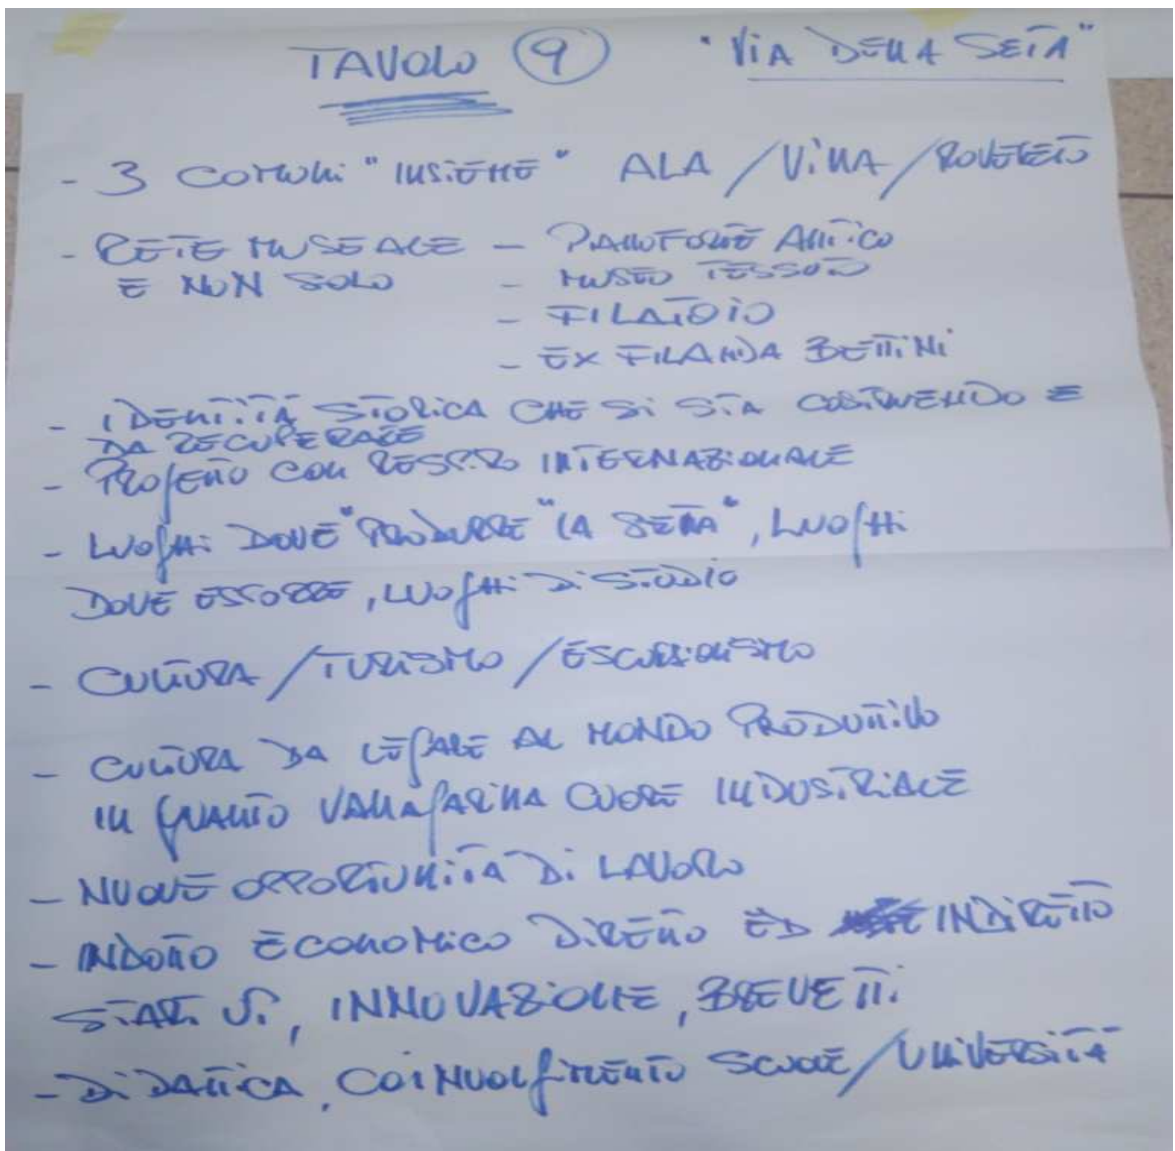 TAVOLO 9 "VIA DELLA SETA"
- 3 COMUNI "INSIEME" ALA / VILLA / ROVERETO
- RETE MUSEALE - PIANOFORTE ANTICO
E NON SOLO - MUSEO TESSUTO
- FILATOIO
- EX FILANDA BETTINI
- IDENTITÀ STORICA CHE SI STA COSTRUENDO E
DA RECUPERARE
- PROGETTO CON RESPIRO INTERNAZIONALE
- LUOGHI DOVE "PRODURRE "LA SETA", LUOGHI
DOVE ESPORRE, LUOGHI DI STUDIO
- CULTURA / TURISMO / ESCURSIONISMO
- CULTURA DA LEGARE AL MONDO PRODUTTIVO
IN QUANTO VALLAGARINA CUORE INDUSTRIALE
- NUOVE OPPORTUNITÀ DI LAVORO
- INDOTTO ECONOMICO DIRETTO ED INDIRETTO
START UP, INNOVAZIONE, BREVETTI
- DIDATTICA, COINVOLGIMENTO SCUOLE / UNIVERSITÀ